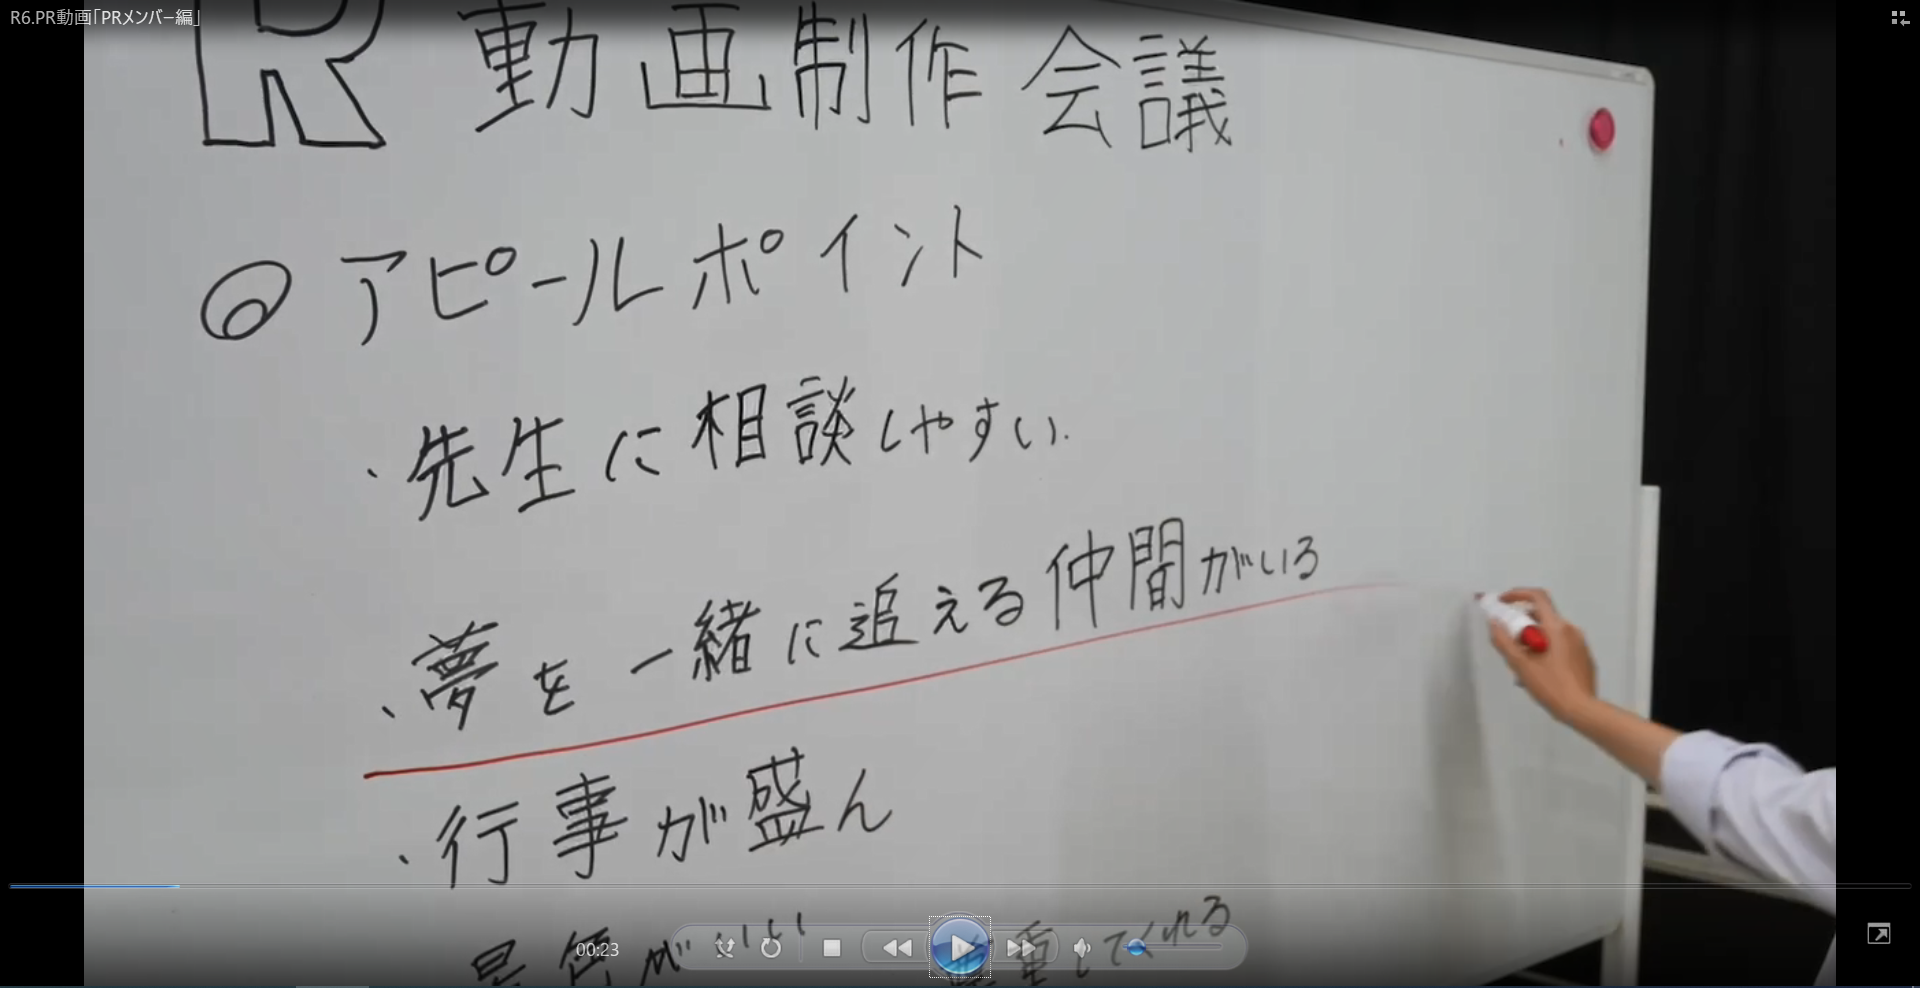 R6.PR動画「PRメンバー編」
R 動画制作会議
◎アピールポイント
・先生に相談しやすい
・夢を一緒に追える仲間がいる
・行事が盛ん
景色がいい 尊重してくれる
00:23